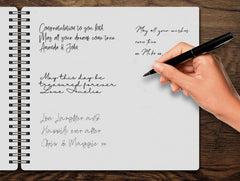 Congratulations to you both
May all your dreams come true
Amanda & John
May this day be
treasured forever
Love Amelia
Love Laughter and
Happily ever after
Chris & Maggie xx
May all your wishes
come true